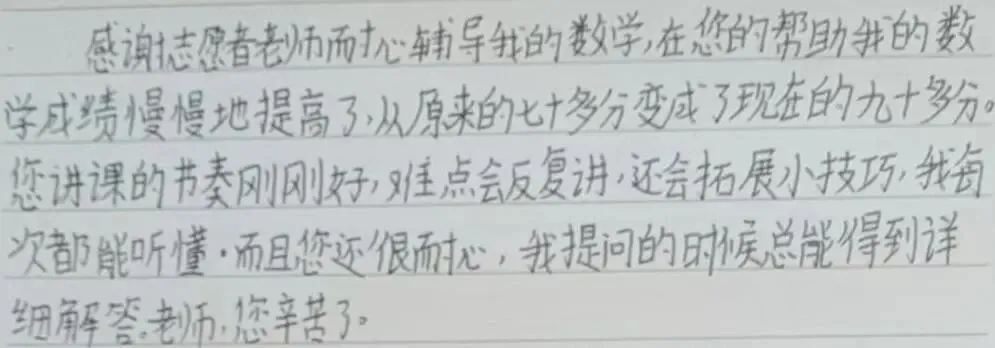 感谢志愿者老师耐心辅导我的数学,在您的帮助我的数
学成绩慢慢地提高了,从原来的七十多分变成了现在的九十多分。
您讲课的节奏刚刚好,难点会反复讲,还会拓展小技巧,我每
次都能听懂.而且您还很耐心,我提问的时候总能得到详
细解答。老师,您辛苦了。